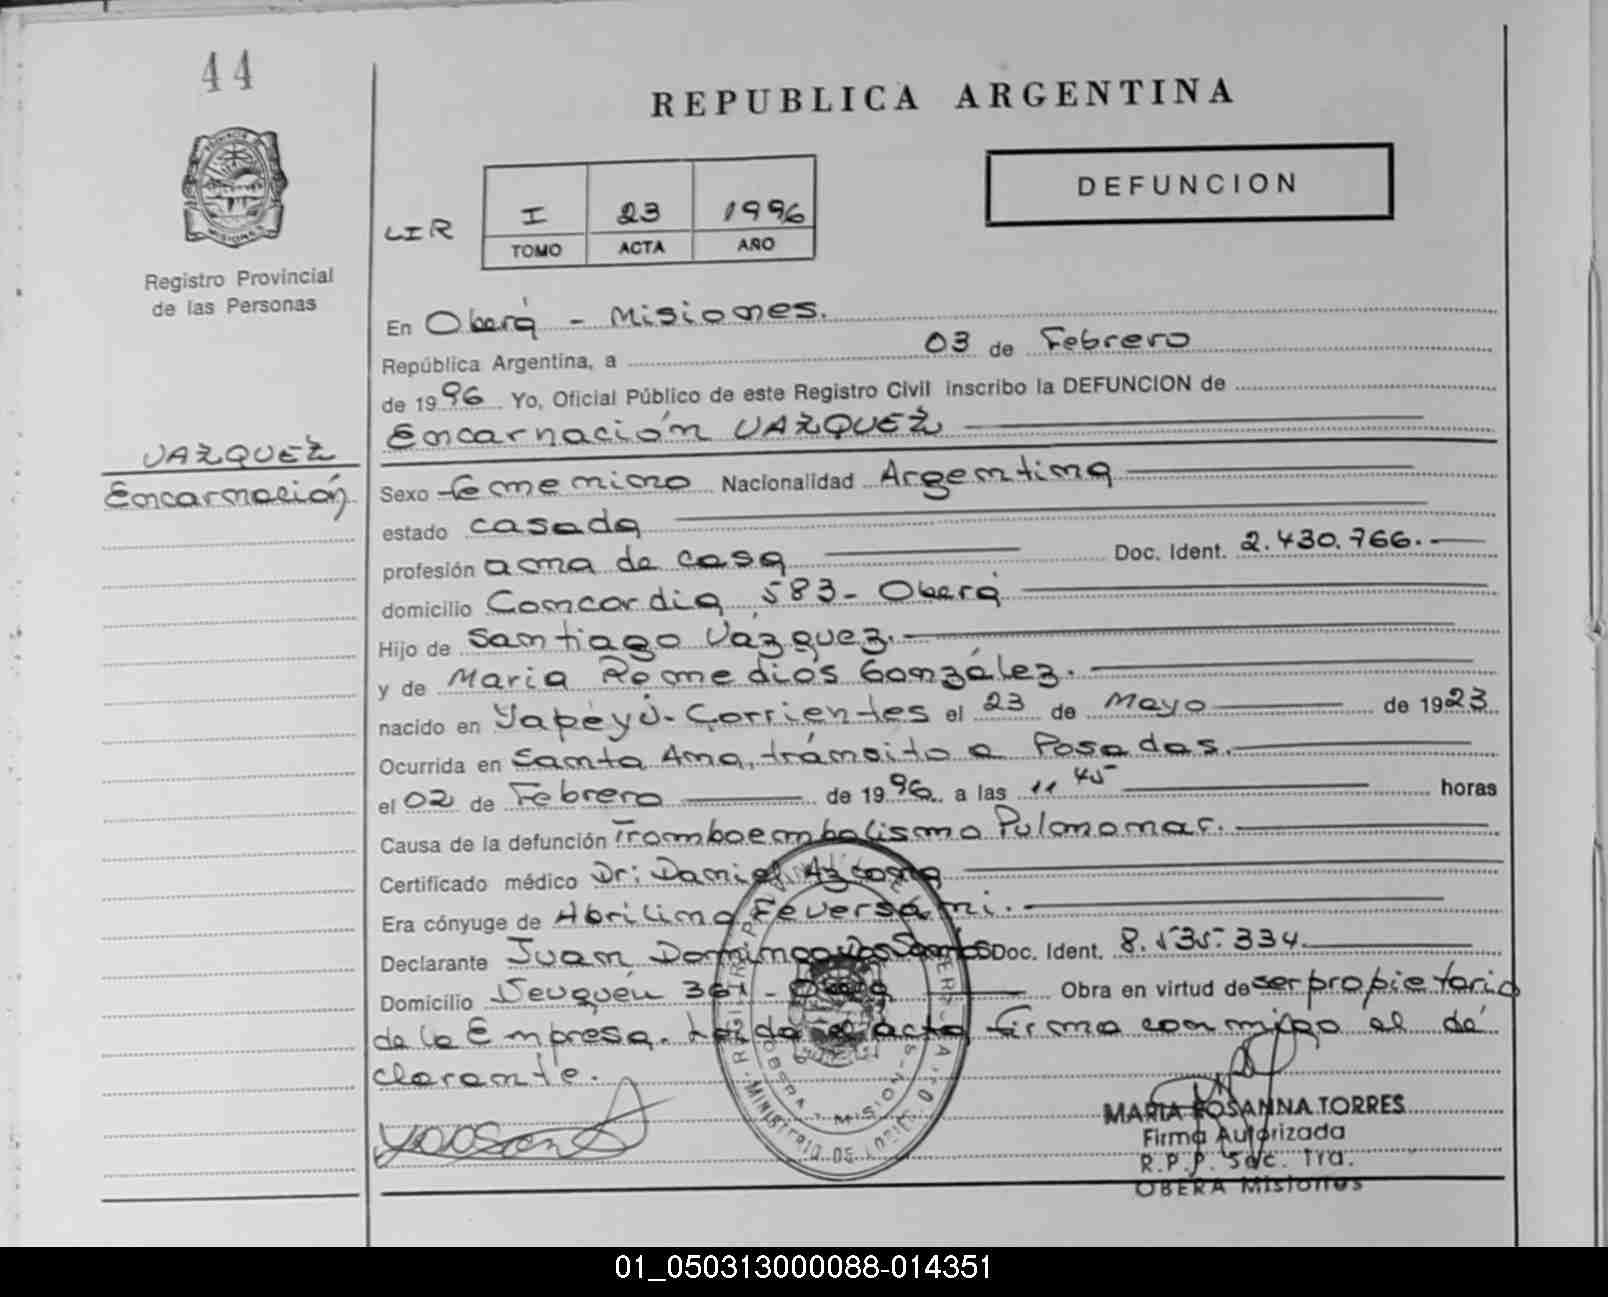 44
REPUBLICA ARGENTINA
DEFUNCION
LIR
I 23 1996
TOMO ACTA AÑO
Registro Provincial
de las Personas
En Oberá - Misiones.
República Argentina, a 03 de Febrero
de 1996 Yo, Oficial Público de este Registro Civil inscribo la DEFUNCION de
Encarnación VAZQUEZ
VAZQUEZ
Encarnación
Sexo femenino Nacionalidad Argentina
estado casada
profesión ama de casa Doc. Ident. 2.430.766.
domicilio Concordia 583 - Oberá
Hijo de Santiago Vázquez.
y de Maria Remedios González.
nacido en Yapeyú - Corrientes el 23 de Mayo de 1923
Ocurrida en Santa Ana, tránsito a Posadas.
el 02 de Febrero de 1996 a las 11 45 horas
Causa de la defunción Tromboembolismo Pulmonar.
Certificado médico Dr: Daniel Azcona
Era cónyuge de Abrilino Feversani.
Declarante Juan Domingo Dos Santos Doc. Ident. 8.535.334.
Domicilio Neuquén 361 - Oberá Obra en virtud de ser propietario
de la Empresa. Leida el acta firma conmigo el de
clarante.
MARIA ROSANNA TORRES
Firma Autorizada
R.P.P. Sec. 1ra.
OBERA Misiones
01_050313000088-014351